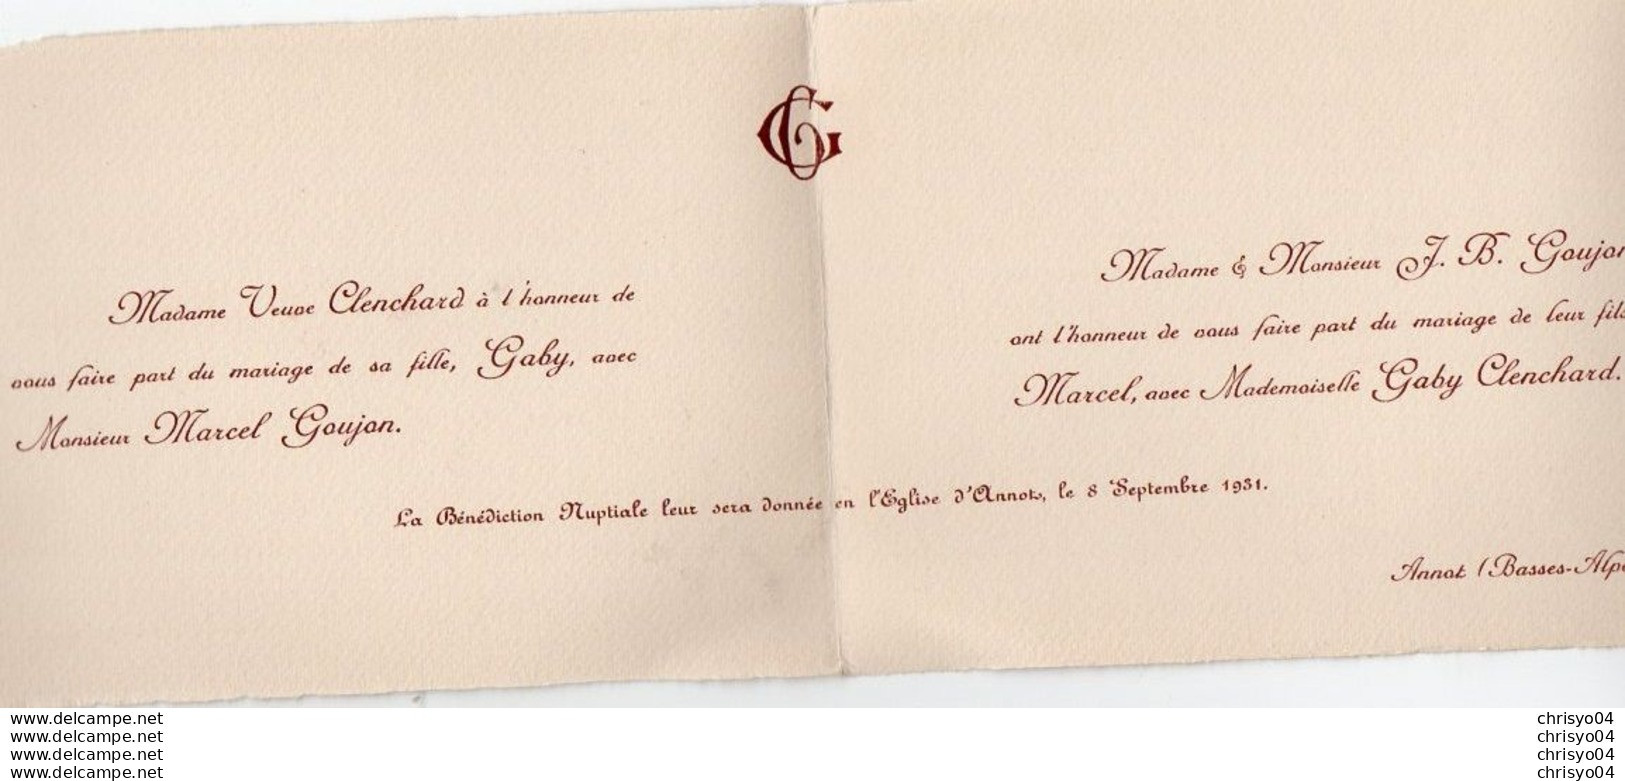 CG
Madame Veuve Clenchard à l'honneur de
vous faire part du mariage de sa fille, Gaby, avec
Monsieur Marcel Goujon.
Madame & Monsieur J. B. Goujon
ont l'honneur de vous faire part du mariage de leur fils
Marcel, avec Mademoiselle Gaby Clenchard.
La Bénédiction Nuptiale leur sera donnée en l'Eglise d'Annot, le 8 Septembre 1931.
Annot (Basses-Alp
www.delcampe.net
www.delcampe.net
www.delcampe.net
www.delcampe.net
chrisyo04
chrisyo04
chrisyo04
chrisyo04